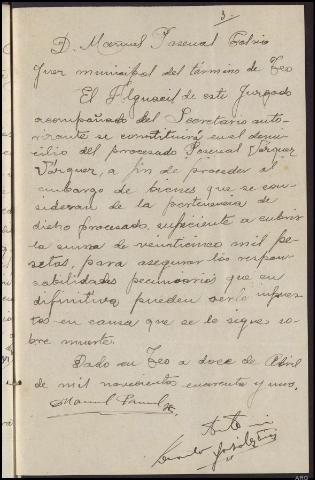 3
D. Manuel Pascual
Juez municipal del término de Teo
El Alguacil de este Juzgado
acompañado del Secretario auto-
rizante se constituirá en el domi-
cilio del procesado Pascual Vázquez
Vázquez, a fin de proceder al
embargo de bienes que se con-
sideran de la pertenencia de
dicho procesado suficiente a cubrir
la suma de veinticinco mil pe-
setas, para asegurar las respon-
sabilidades pecuniarias que en
difinitiva pueden serle impues-
tas en causa que se le sigue so-
bre muerte.
Dado en Teo a doce de Abril
de mil novecientos cuarenta y uno.
Manuel
Ante mi
ARG